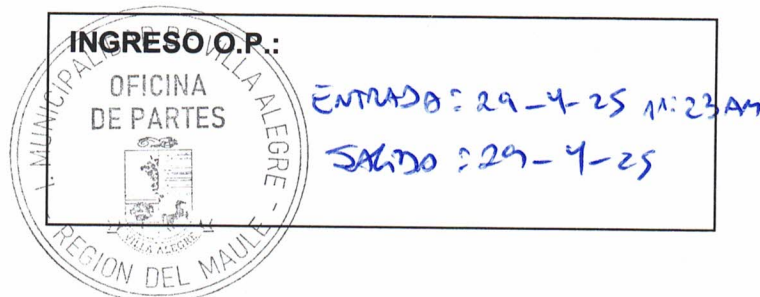 INGRESO O.P.:
I. MUNICIPALIDAD DE VILLA ALEGRE - REGION DEL MAULE
OFICINA
DE PARTES
VILLA ALEGRE
ENTRADA: 29-4-25 11:23 AM
SALIDO: 29-4-25